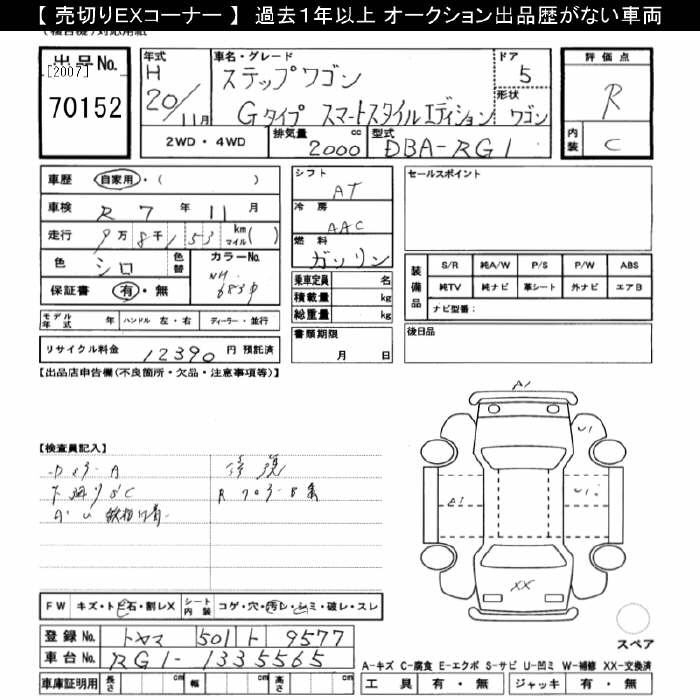 【 売切りEXコーナー 】 過去１年以上 オークション出品歴がない車両
出品No.
[2007]
70152
年式
H
20/11月
車名・グレード
ステップワゴン
Gタイプ スマートスタイルエディション
ドア
5
形状
ワゴン
評価点
R
内装
C
2WD・4WD
排気量
2000 cc
型式
DBA-RG1
車歴
自家用・( )
車検
R 7 年 11 月
走行
9万 8千 153 km マイル( )
色
シロ
色替
カラーNo.
NH
683P
保証書
有・無
モデル年式 年
ハンドル 左・右
ディーラー・並行
リサイクル料金 12390 円 預託済
シフト
AT
冷房
AAC
燃料
ガソリン
乗車定員 名
積載量 kg
総重量 kg
書類期限
月 日
セールスポイント
装備品
S/R 純A/W P/S P/W ABS
純TV 純ナビ 革シート 外ナビ エアB
ナビ型番：
後日品
【出品店申告欄(不良箇所・欠品・注意事項等)】
【検査員記入】
下廻りSC
A1
U1
A1
U1
XX
スペア
FW キズ・トビ石・割レX
シート内装 コゲ・穴・汚レ・シミ・破レ・スレ
登録No. トヤマ 501 ト 9577
車台No. RG1-1335565
車庫証明用 長さ cm 幅 cm 高さ cm
A-キズ C-腐食 E-エクボ S-サビ U-凹ミ W-補修 XX-交換済
工具 有・無 ジャッキ 有・無